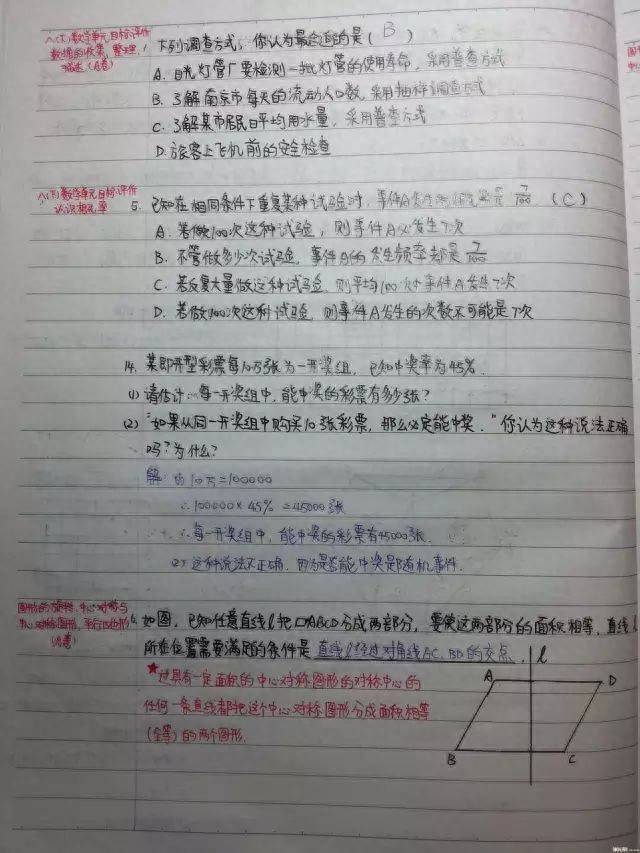 八(下)数学单元目标评价
数据的收集、整理、
描述(A卷)
1. 下列调查方式,你认为最合适的是( B )
A. 日光灯管厂要检测一批灯管的使用寿命,采用普查方式
B. 了解南京市每天的流动人口数,采用抽样调查方式
C. 了解某市居民日平均用水量,采用普查方式
D. 旅客上飞机前的安全检查
八(下)数学单元目标评价
认识概率
5. 已知在相同条件下重复某种试验时,事件A发生的概率是 7/100 (C)
A. 若做100次这种试验,则事件A必发生7次
B. 不管做多少次试验,事件A的发生频率都是 7/100
C. 若反复大量做这种试验,则平均100次中事件A发生7次
D. 若做100次这种试验,则事件A发生的次数不可能是7次
14. 某即开型彩票每10万张为一开奖组,已知中奖率为45%.
(1) 请估计:每一开奖组中,能中奖的彩票有多少张?
(2) "如果从同一开奖组中购买10张彩票,那么必定能中奖."你认为这种说法正确
吗?为什么?
解: (1) 10万=100000
∴100000×45%=45000张
∴每一开奖组中,能中奖的彩票有45000张.
(2) 这种说法不正确.因为是否能中奖是随机事件.
图形的旋转、中心对称与
中心对称图形、平行四边形
(A卷)
6. 如图,已知任意直线l把▱ABCD分成两部分,要使这两部分的面积相等,直线l
所在位置需要满足的条件是 直线l经过对角线AC、BD的交点.
★过具有一定面积的中心对称图形的对称中心的
任何一条直线都把这个中心对称图形分成面积相等
(全等)的两个图形.
l
A D
B C